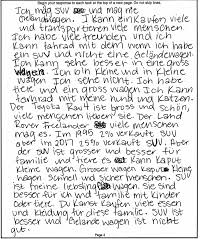 Begin your response to each task at the top of a new page. Do not skip lines.
Ich mag SUV und mag nie
Geländewagen. I kann ein kaufen viele
und transportieren viele menschen.
Ich habe viele freunden und ich
kann fahrad mit dem wenn ich habe
ein SUV und nichte eine Geländewagen.
Ich kann sehe besser in eine gross
wagen. Ich bin kleine und in kleine
wagen Ich sehe nicht. Ich habe
tiere und ein gross wagen Ich kann
fahrrad mit meine hund und katzen.
Der Toyota Rav4 ist gross und schön,
viele menschen lieben sie. Der Land
Rover Freelander viele menschen
mag es. In 1995 2% verkauft SUV
aber im 2017 25% verkauft SUV. Aber
der SUV ist grosser und besser für
familie und tiere es kann kaput
kleine wagen. Grosser wagen
wagen schnell und sicher menschen. SUV
ist meine liebsling wagen. Sie sind
besser für ich und familie mit kinder
oder tiere. Du kanst kaufen viele essen
und kleidung für diese familie. SUV ist
besser und Gelande wagen ist nicht
gut.
Page 4